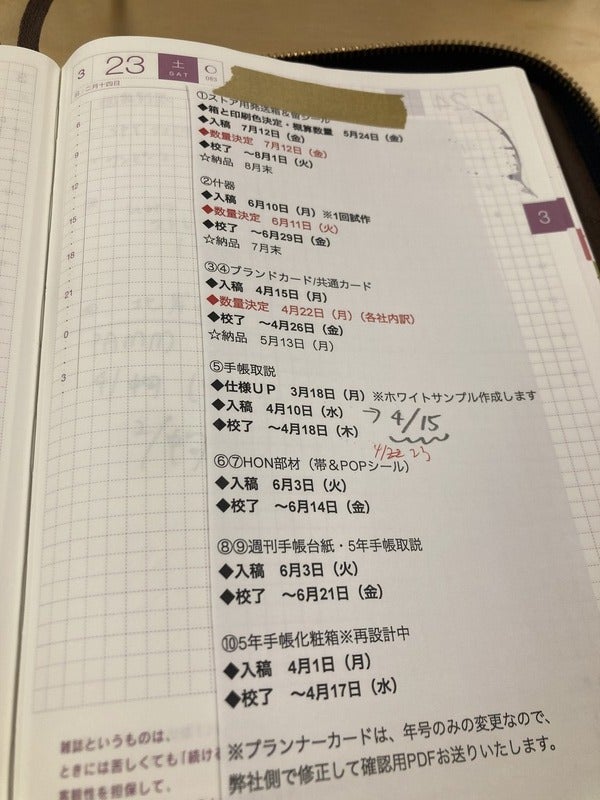 3 23 土 SAT 083
旧 二月十四日
①ストア用発送箱&
◆箱と印刷色決定・概算数量 5月24日（金）
◆入稿 7月12日（金）
◆数量決定 7月12日（金）
◆校了 ～8月1日（火）
☆納品 8月末
②什器
◆入稿 6月10日（月）※1回試作
◆数量決定 6月11日（火）
◆校了 ～6月29日（金）
☆納品 7月末
③④ブランドカード/共通カード
◆入稿 4月15日（月）
◆数量決定 4月22日（月）（各社内訳）
◆校了 ～4月26日（金）
☆納品 5月13日（月）
⑤手帳取説
◆仕様UP 3月18日（月）※ホワイトサンプル作成します
◆入稿 4月10日（水） → 4/15
◆校了 ～4月18日（木）
4/22 23
⑥⑦HON部材（帯&POPシール）
◆入稿 6月3日（火）
◆校了 ～6月14日（金）
⑧⑨週刊手帳台紙・5年手帳取説
◆入稿 6月3日（火）
◆校了 ～6月21日（金）
⑩5年手帳化粧箱※再設計中
◆入稿 4月1日（月）
◆校了 ～4月17日（水）
※プランナーカードは、年号のみの変更なので、
弊社側で修正して確認用PDFお送りいたします。
6
9
12
15
18
21
0
3
3
24
雑誌というものは、
ときには苦しくても「続ける
客観性を担保して、